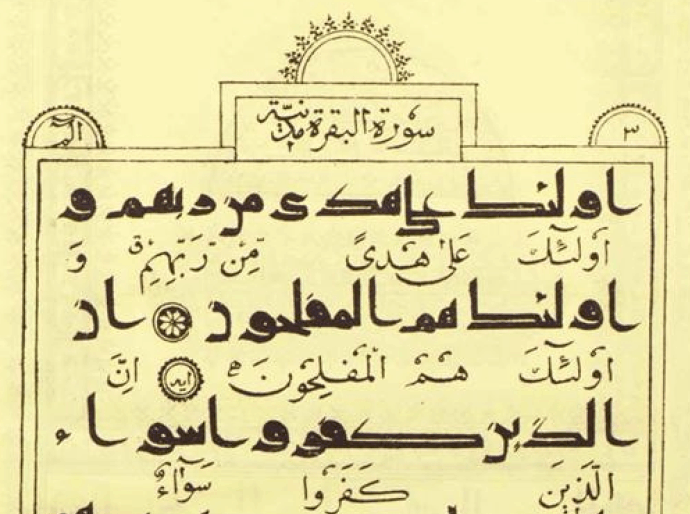 الٓمٓ
سُورَة البقرة مَدَنِيَّة
٣
اولىك على هدى من ربهم و
اُولٰٓئِكَ عَلٰى هُدًى مِّنْ رَّبِّهِمْ وَ
اولىك هم المفلحون ان
اُولٰٓئِكَ هُمُ الْمُفْلِحُونَ اٰيه اِنَّ
الذين كفروا سواء
الَّذِينَ كَفَرُوا سَوَآءٌ